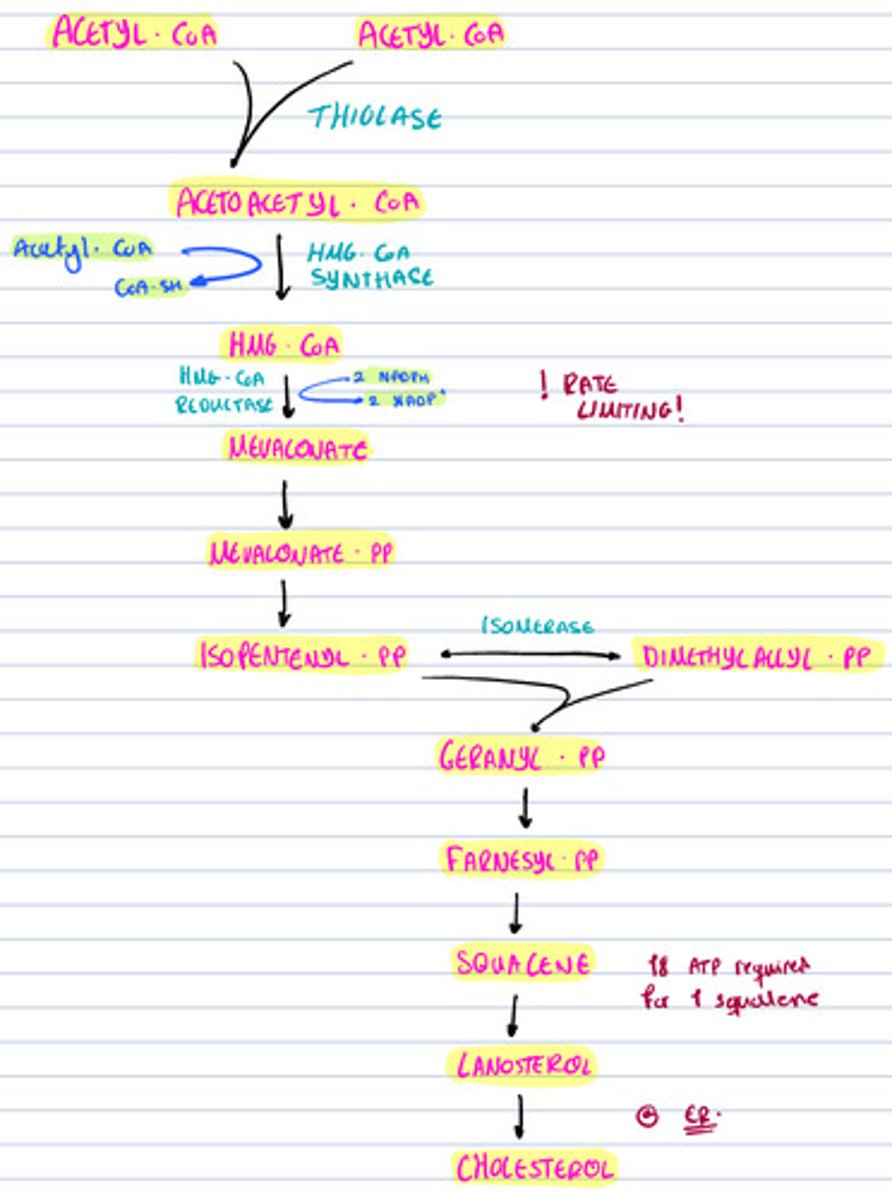 ACETYL · CoA ACETYL · CoA
THIOLASE
ACETOACETYL · CoA
Acetyl · CoA
HMG · CoA
SYNTHASE
CoA-SH
HMG · CoA
HMG-CoA
REDUCTASE
2 NADPH
2 NADP⁺
! RATE
LIMITING!
MEVALONATE
MEVALONATE · PP
ISOMERASE
ISOPENTENYL · PP DIMETHYLALLYL · PP
GERANYL · PP
FARNESYL · PP
SQUALENE
18 ATP required
for 1 squalene
LANOSTEROL
@ ER.
CHOLESTEROL